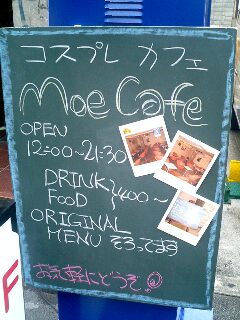 コスプレ カフェ
Moe Cafe
OPEN
12:00〜21:30
DRINK
FOOD ¥400〜
ORIGINAL
MENU そろってます
お気軽にどうぞ。
F